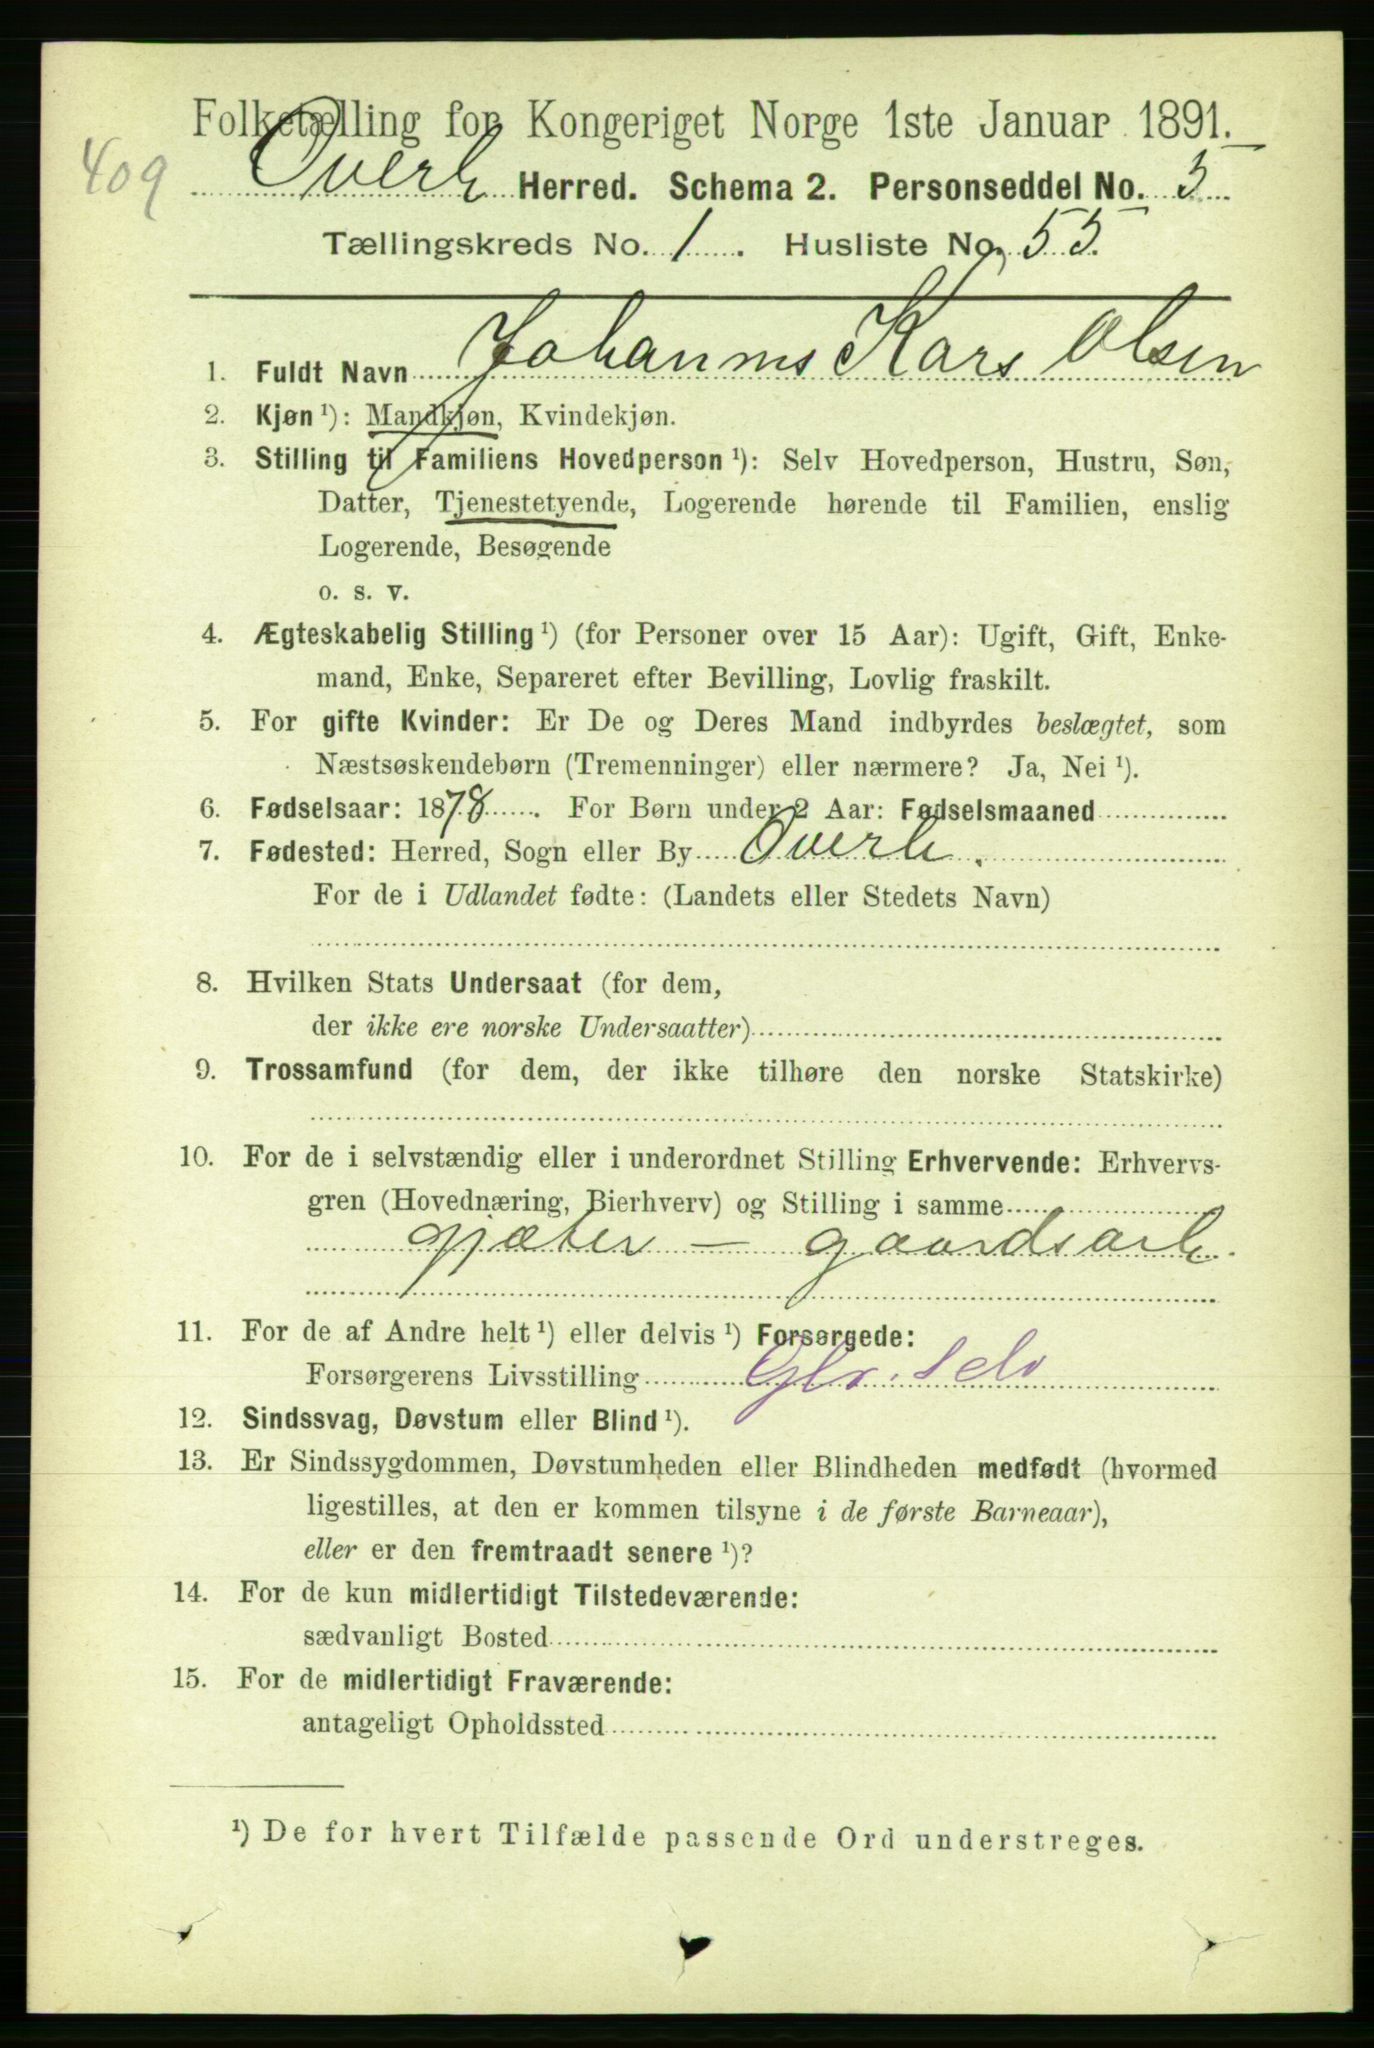 Folketælling for Kongeriget Norge 1ste Januar 1891.
409
Overh Herred. Schema 2. Personseddel No. 5
Tællingskreds No. 1. Husliste No. 55.
1. Fuldt Navn Johannes Kors Olsen
2. Kjøn ¹): Mandkjøn, Kvindekjøn.
3. Stilling til Familiens Hovedperson ¹): Selv Hovedperson, Hustru, Søn,
Datter, Tjenestetyende, Logerende hørende til Familien, enslig
Logerende, Besøgende
o. s. v.
4. Ægteskabelig Stilling ¹) (for Personer over 15 Aar): Ugift, Gift, Enke-
mand, Enke, Separeret efter Bevilling, Lovlig fraskilt.
5. For gifte Kvinder: Er De og Deres Mand indbyrdes beslægtet, som
Næstsøskendebørn (Tremenninger) eller nærmere? Ja, Nei ¹).
6. Fødselsaar: 1878. For Børn under 2 Aar: Fødselsmaaned
7. Fødested: Herred, Sogn eller By Overh.
For de i Udlandet fødte: (Landets eller Stedets Navn)
8. Hvilken Stats Undersaat (for dem,
der ikke ere norske Undersaatter)
9. Trossamfund (for dem, der ikke tilhøre den norske Statskirke)
10. For de i selvstændig eller i underordnet Stilling Erhvervende: Erhvervs-
gren (Hovednæring, Bierhverv) og Stilling i samme
gjæter - gaardsarb.
11. For de af Andre helt ¹) eller delvis ¹) Forsørgede:
Forsørgerens Livsstilling Gbr. Selv
12. Sindssvag, Døvstum eller Blind ¹).
13. Er Sindssygdommen, Døvstumheden eller Blindheden medfødt (hvormed
ligestilles, at den er kommen tilsyne i de første Barneaar),
eller er den fremtraadt senere ¹)?
14. For de kun midlertidigt Tilstedeværende:
sædvanligt Bosted
15. For de midlertidigt Fraværende:
antageligt Opholdssted
¹) De for hvert Tilfælde passende Ord understreges.